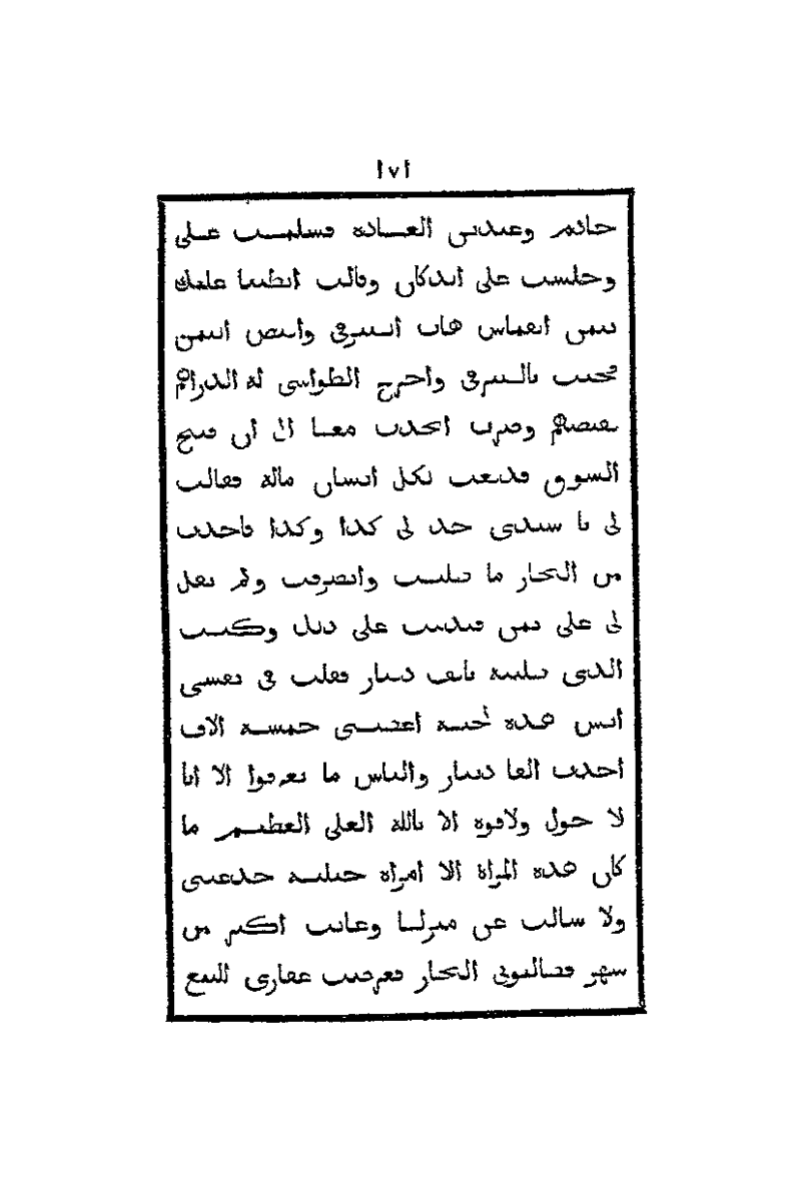 ١٧١
خادم وعبدين العـاده فسلمـت عـلى
وجلست على الدكان وقالت ابطينا عليك
بثمن القماش هات الـيـرفى واقبض الثمن
فجيت بالـيـرفى واخرج الطواشى له الدراهم
بقبضهم وصرت اتحدث معـا الى ان فتح
السوق فدفعت لكل انسان ماله فقالت
لى يا سيدى خذ لى كذا وكذا فاخذت
من التجار ما طلبـت وانصرفت ولم تقل
لى على ثمن فندمت على ذلك وكنـت
الذى طلبته بالف دينار فقلت فى نفسى
ايس هذه المحبـة اعطتـنى خمسـة الاف
اخذت الفا دينار والناس ما تعرفوا الا انا
لا حول ولاقوه الا بالله العلى العظيـم ما
كان هذه المراة الا امراه حيلـيـة خدعتنى
ولا سالت عن منزلـا وغابت اكثر من
شهر فطالبونى التجار فعرضت عقارى للبيع